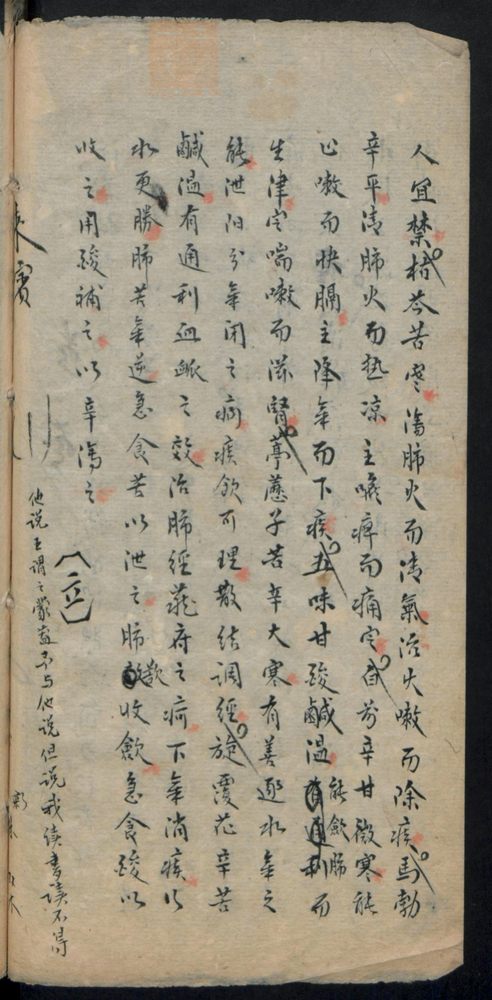 人宜禁桔芩苦寒瀉肺火而清氣治火嗽而除痰馬勃
辛平清肺火而热凉主喉痺而痛定白前辛甘微寒能
止嗽而快膈主降氣而下痰五味甘酸鹹温能斂肺而
生津定喘嗽而滋腎葶藶子苦辛大寒有善逐水氣之
能泄阳分氣闭之病痰飲可理散结調經旋覆花辛苦
鹹温有通利血脈之效治肺經蔵府之疴下氣消痰行
水更勝肺苦氣逆急食苦以泄之肺欲收斂急食酸以
收之用酸補之以辛瀉之
他说王謂之蒙益不与他说但说我续書读不得